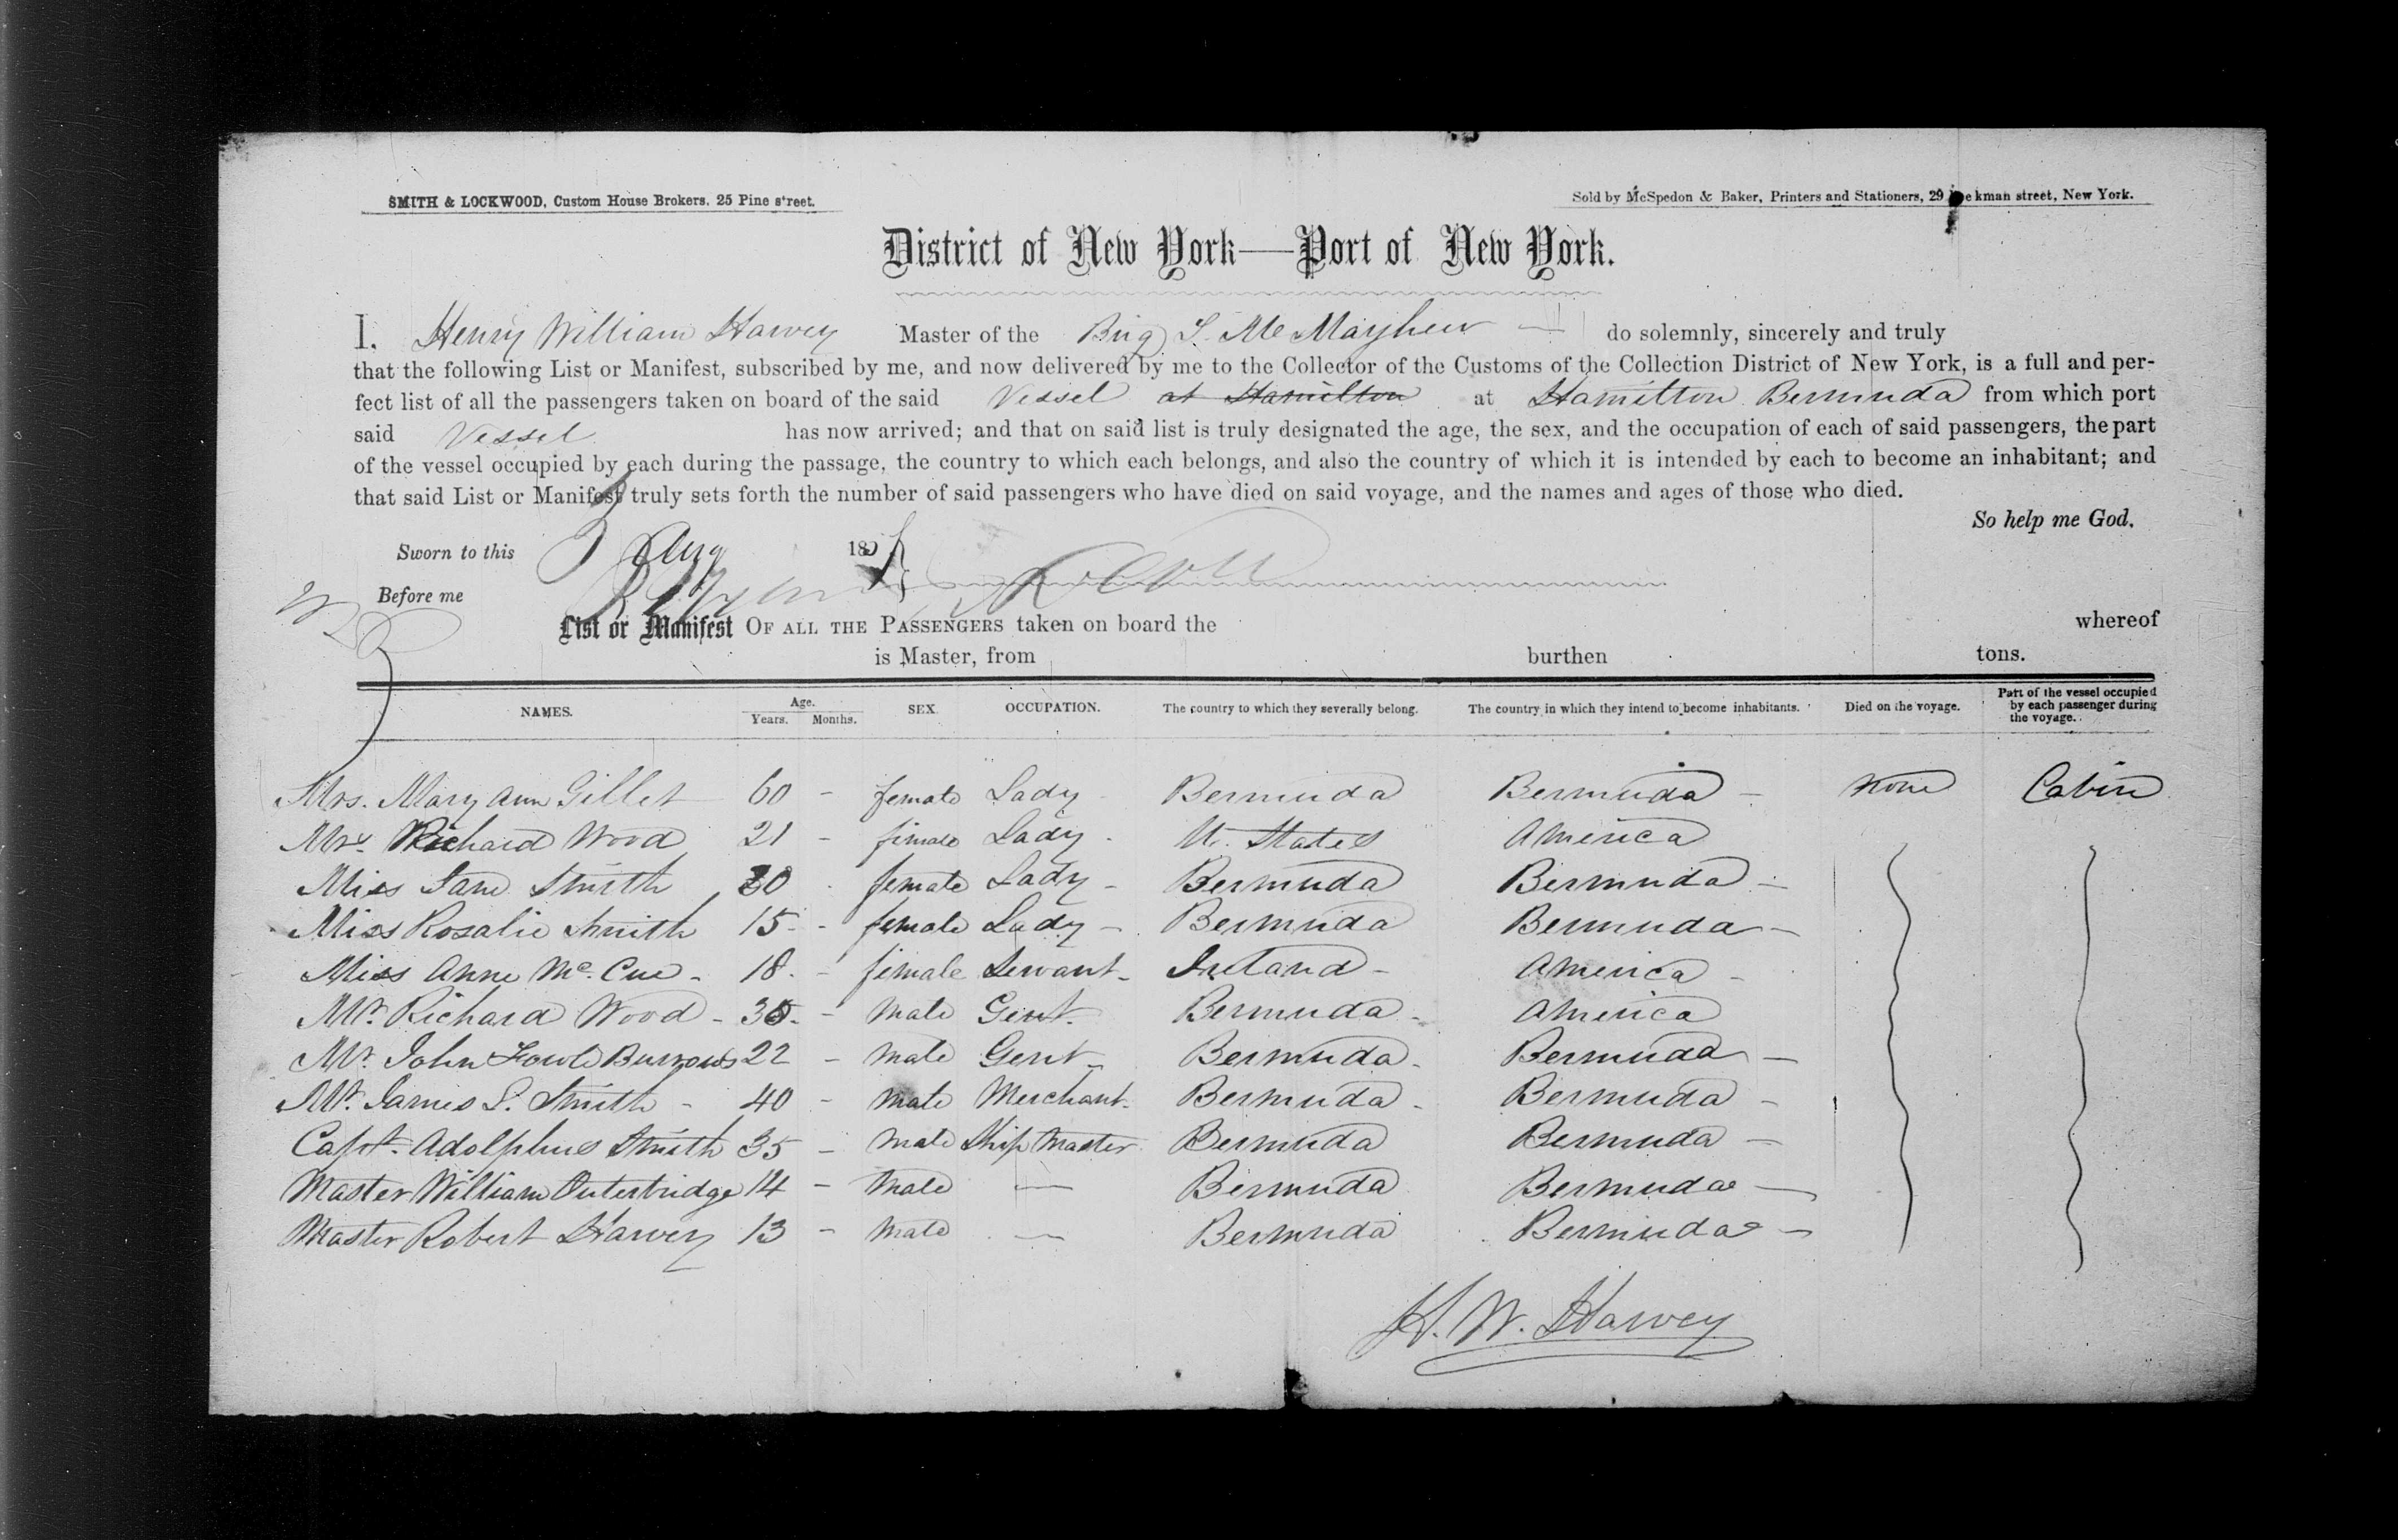 SMITH & LOCKWOOD, Custom House Brokers. 25 Pine street.
Sold by McSpedon & Baker, Printers and Stationers, 29 ekman street, New York.
District of New York—Port of New York.
I. Henry William Harvey Master of the Brig Mayhew do solemnly, sincerely and truly
that the following List or Manifest, subscribed by me, and now delivered by me to the Collector of the Customs of the Collection District of New York, is a full and per-
fect list of all the passengers taken on board of the said Vessel at Hamilton at Hamilton Bermuda from which port
said Vessel has now arrived; and that on said list is truly designated the age, the sex, and the occupation of each of said passengers, the part
of the vessel occupied by each during the passage, the country to which each belongs, and also the country of which it is intended by each to become an inhabitant; and
that said List or Manifest truly sets forth the number of said passengers who have died on said voyage, and the names and ages of those who died.
So help me God.
Sworn to this 3 Aug 185
Before me
List or Manifest OF ALL THE PASSENGERS taken on board the whereof
is Master, from burthen tons.
NAMES. Age. Years. Months. SEX OCCUPATION. The country to which they severally belong. The country in which they intend to become inhabitants. Died on the voyage. Part of the vessel occupied by each passenger during the voyage.
Mrs. Mary Ann Gillet 60 - female Lady Bermuda Bermuda - None Cabin
Mrs. Richard Wood 21 - female Lady - U. States America
Miss Jane Smith 30 - female Lady - Bermuda Bermuda -
Miss Rosalie Smith 15 - female Lady - Bermuda Bermuda -
Miss Anne Mc. Cue - 18 - female Servant - Ireland - America -
Mr. Richard Wood - 30 - male Gent. Bermuda - America
Mr. John Fowle Burrows 22 - male Gent - Bermuda - Bermuda -
Mr. James S. Smith - 40 - male Merchant - Bermuda - Bermuda -
Capt. Adolphus Smith 35 - male Ship Master Bermuda Bermuda -
Master William Outerbridge 14 - male — Bermuda Bermuda —
Master Robert Harvey 13 - male — Bermuda Bermuda -
H. W. Harvey